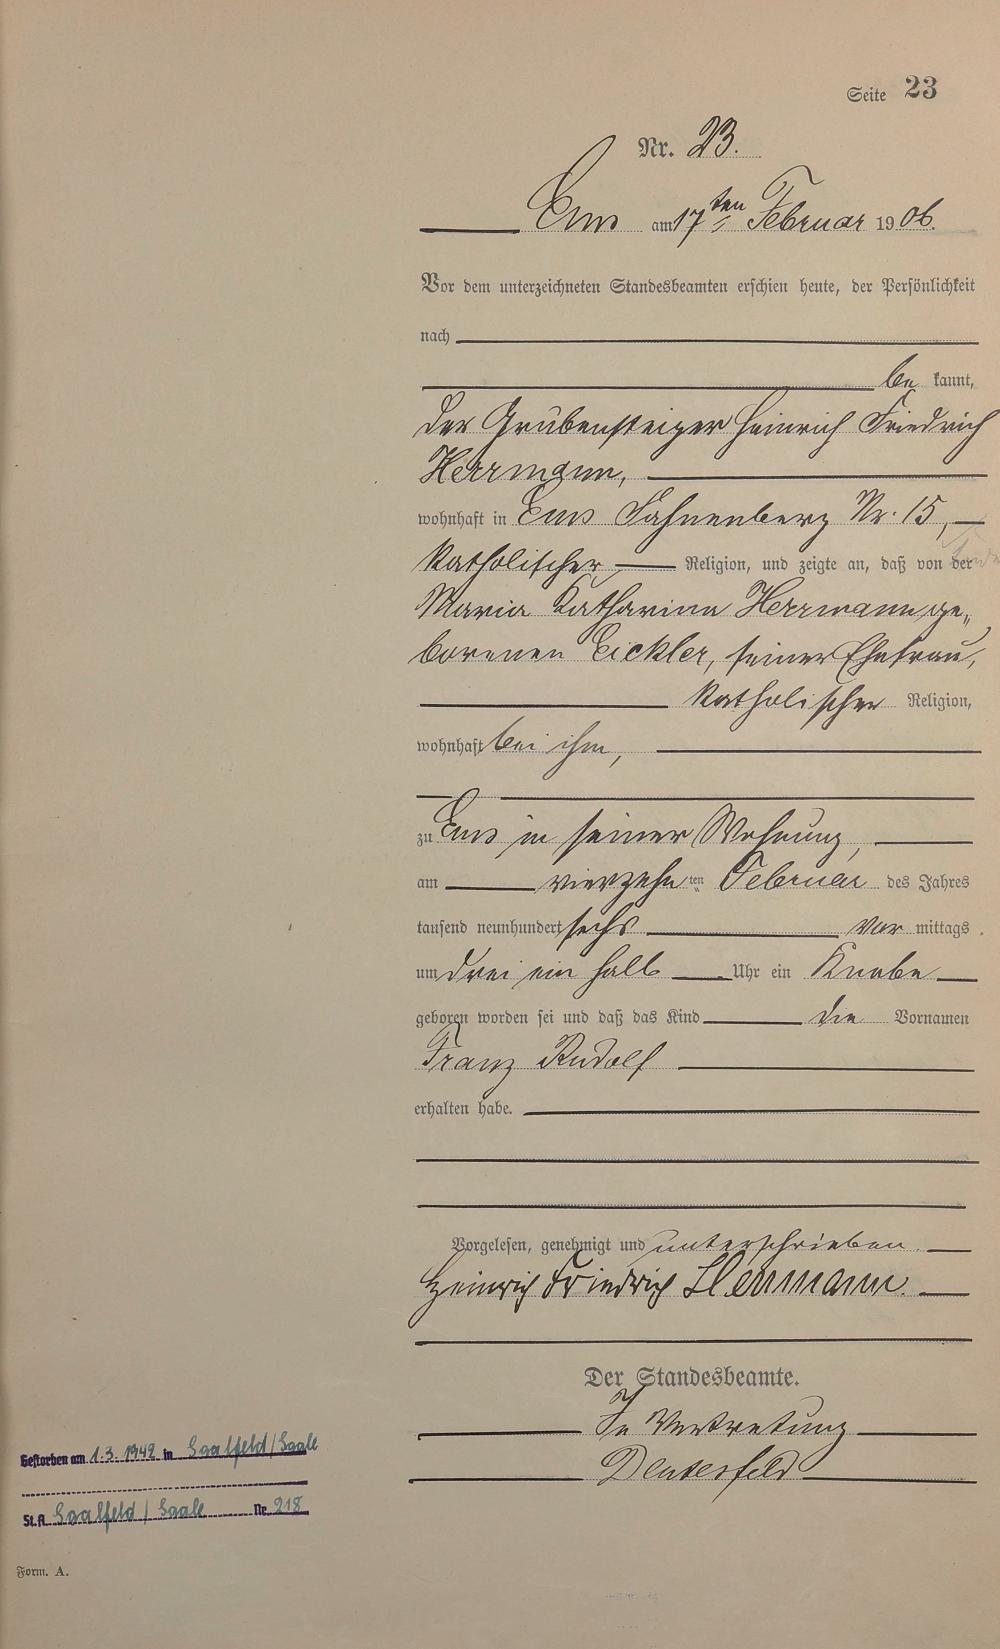 Seite 23
Nr. 23.
Ems am 17ten Februar 1906.
Vor dem unterzeichneten Standesbeamten erschien heute, der Persönlichkeit
nach
be kannt,
der Grubensteiger Heinrich Friedrich
Herrmann,
wohnhaft in Ems Fahnenberg Nr. 15,
katholischer Religion, und zeigte an, daß von der
Maria Katharina Herrmann ge„
borenen Eickler, seiner Ehefrau,
katholischer Religion,
wohnhaft bei ihm,
zu Ems in seiner Wohnung,
am vierzehnten Februar des Jahres
tausend neunhundert sechs vor mittags
um drei ein halb Uhr ein Knabe
geboren worden sei und daß das Kind die Vornamen
Franz Rudolf
erhalten habe.
Vorgelesen, genehmigt und unterschrieben.
Heinrich Friedrich Herrmann.
Der Standesbeamte.
In Vertretung
Gestorben am 1.3.1942 in Saalfeld/Saale
St.A. Saalfeld / Saale Nr. 218
Form. A.